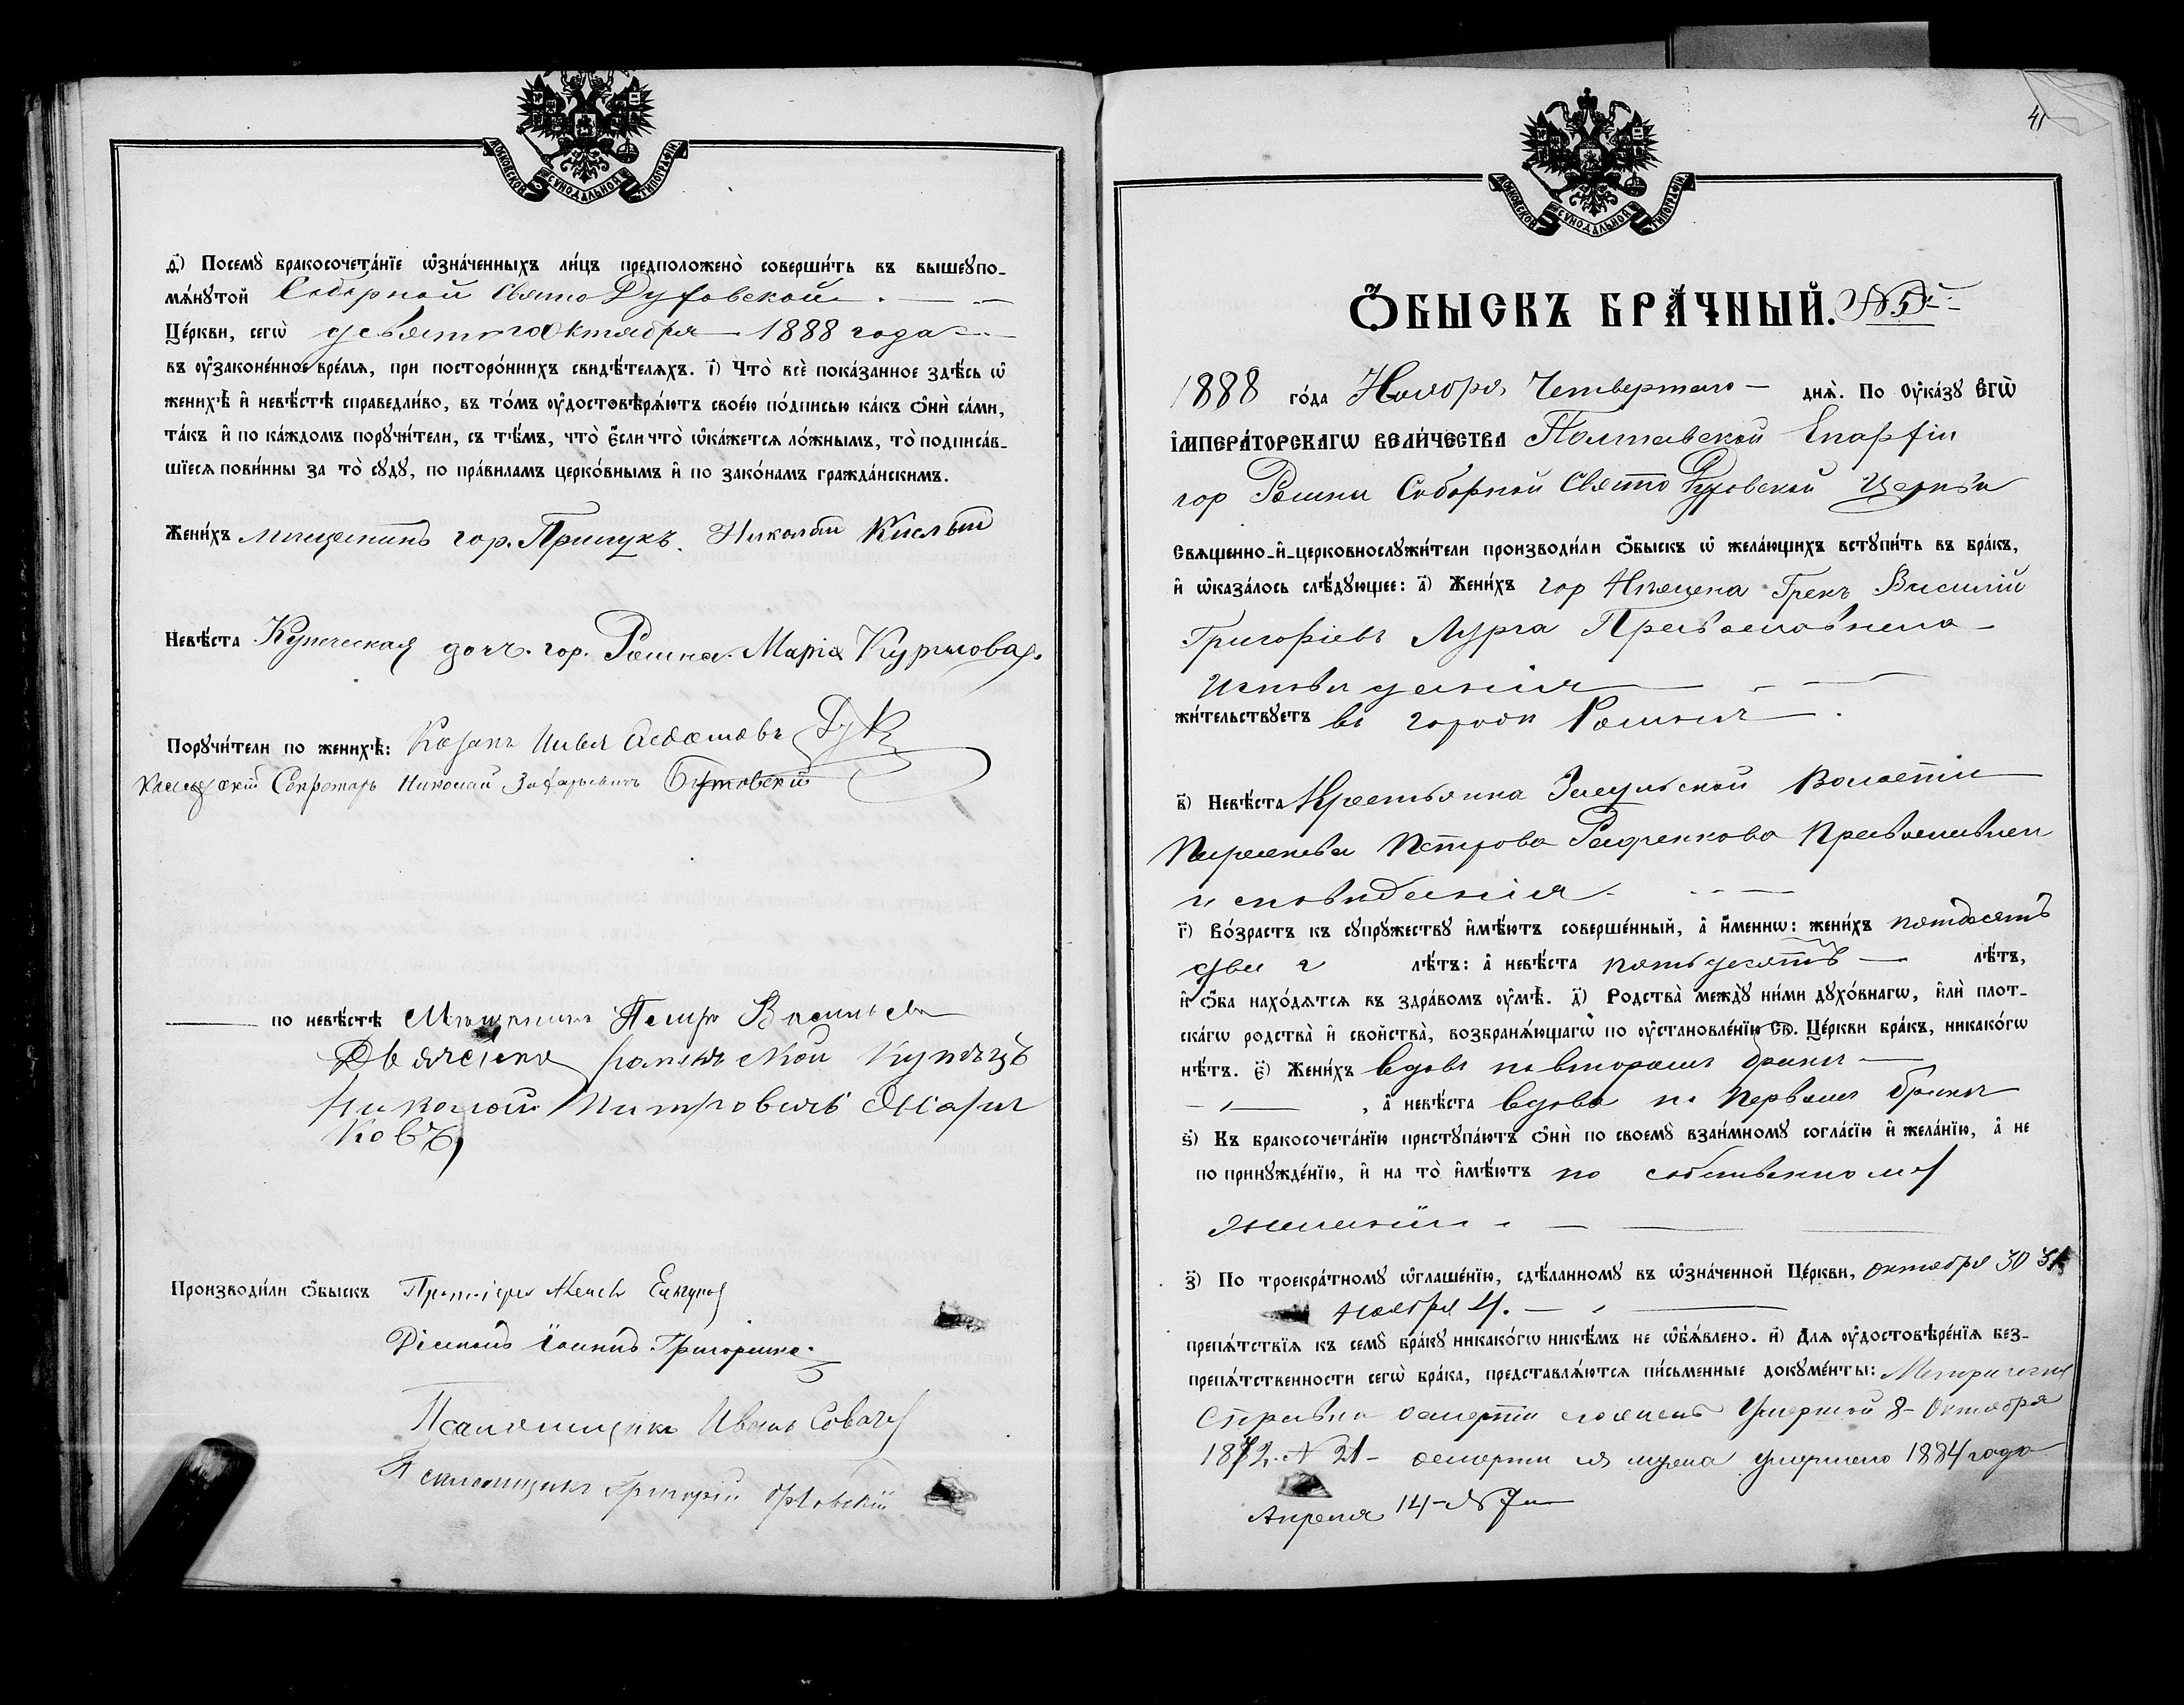 МОСКОВСКОЙ СѴНОДАЛЬНОЙ ТИПОГРАФІИ.
ѳ҃) Посемꙋ̀ бракосочета́нїе ѡ҆зна́ченныхъ ли́цъ предположено̀ соверши́ть въ вышеꙋпо-
мѧ́нꙋтой Соборной Свято Духовской
Це́ркви, сегѡ̀ девятого Октября 1888 года
въ ᲂу҆законе́нное вре́мѧ, при посторо́ннихъ свидѣ́телѧхъ. і҃) Что̀ всѐ пока́занное здѣ́сь ѡ҆
женихѣ̀ и҆ невѣ́стѣ справедли́во, въ то́мъ ᲂу҆достовѣрѧ́ютъ свое́ю по́дписью ка́къ ѻ҆нѝ са́ми,
та́къ и҆ по ка́ждомъ порꙋчи́тели, съ тѣ́мъ, что̀ є҆́сли что̀ ѡ҆ка́жетсѧ ло́жнымъ, то̀ подписа́в-
шїесѧ пови́нны за то̀ сꙋдꙋ̀, по пра́виламъ церко́внымъ и҆ по зако́намъ гражда́нскимъ.
Жени́хъ мещанинъ гор. Прилукъ Николай
Невѣ́ста Купеческая доч. гор. Ромна Марія Курилова
Порꙋчи́тели по женихѣ̀: Козакъ
Коллежскій Секретарь Николай Захарьевичъ Бутовскій
по невѣ́стѣ Мещанинъ Петръ
Купецъ
Николай Питровичъ
ковъ
Производи́ли ѻ҆́быскъ Протоіерей
Діаконъ Іоаннъ Григоренко
Псаломщикъ Иванъ
Псаломщикъ Григорій Орловскій
41
МОСКОВСКОЙ СѴНОДАЛЬНОЙ ТИПОГРАФІИ.
Ѻ҆БЫСКЪ БРА́ЧНЫЙ.
1888 го́да Ноября Четвертого днѧ̀. По Оу҆ка́зꙋ Є҆ГѠ̀
І҆МПЕРА́ТОРСКАГѠ ВЕЛИ́ЧЕСТВА Полтавской Епархіи
гор Ромна Соборной Свято Духовской Церкви
Свѧщенно-и҆-церковнослꙋжи́тели производи́ли ѻ҆́быскъ ѡ҆ жела́ющихъ встꙋпи́ть въ бра́къ,
и҆ ѡ҆каза́лось слѣ́дꙋющее: а҃) Жени́хъ гор Нежена Грекъ Василій
Григоріевъ Православнаго
Исповеданія
жи́тельствꙋетъ въ городе Ромне
в҃) Невѣ́ста Крестьянка Волости
Петрова Православнаго
исповеданія
г҃) Во́зрастъ къ сꙋпрꙋ́жествꙋ и҆мѣ́ютъ соверше́нный, а҆ и҆́меннѡ: жени́хъ пятдесятъ
два г лѣ́тъ: а҆ невѣ́ста пятьдесятъ лѣ́тъ,
и҆ ѻ҆́ба нахо́дѧтсѧ въ здра́вомъ ᲂу҆мѣ̀. д҃) Родства̀ междꙋ̀ ни́ми дꙋхо́внагѡ, и҆лѝ плот-
ска́гѡ родства̀ и҆ сво́йства̀, возбранѧ́ющагѡ по ᲂу҆становле́нїю Св. Це́ркви бра́къ, никако́гѡ
нѣ́тъ. є҃) Жени́хъ вдовъ по второмъ браке
, а҆ невѣ́ста вдова по Первомъ браке
ѕ҃) Къ бракосочета́нїю пристꙋпа́ютъ ѻ҆нѝ по своемꙋ̀ взаи́мномꙋ согла́сїю и҆ жела́нїю, а҆ не
по принꙋжде́нїю, и҆ на то̀ и҆мѣ́ютъ по собственному
желанію
з҃) По троекра́тномꙋ ѡ҆глаше́нїю, сдѣ́ланномꙋ въ ѡ҆зна́ченной Це́ркви, Октября 30 31
Ноября 4.
препѧ́тствїѧ къ семꙋ̀ бра́кꙋ никако́гѡ никѣ́мъ не ѡ҆б̾ѧ́влено. и҃) Длѧ ᲂу҆достовѣре́нїѧ без-
препѧ́тственности сегѡ̀ бра́ка, представлѧ́ютсѧ пи́сьменные докꙋме́нты: Метрическая
Справка осмерти его жены Умершой 8 Октября
N 21 осмерти ея мужа умершего 1884 года
Апреля 14 №7